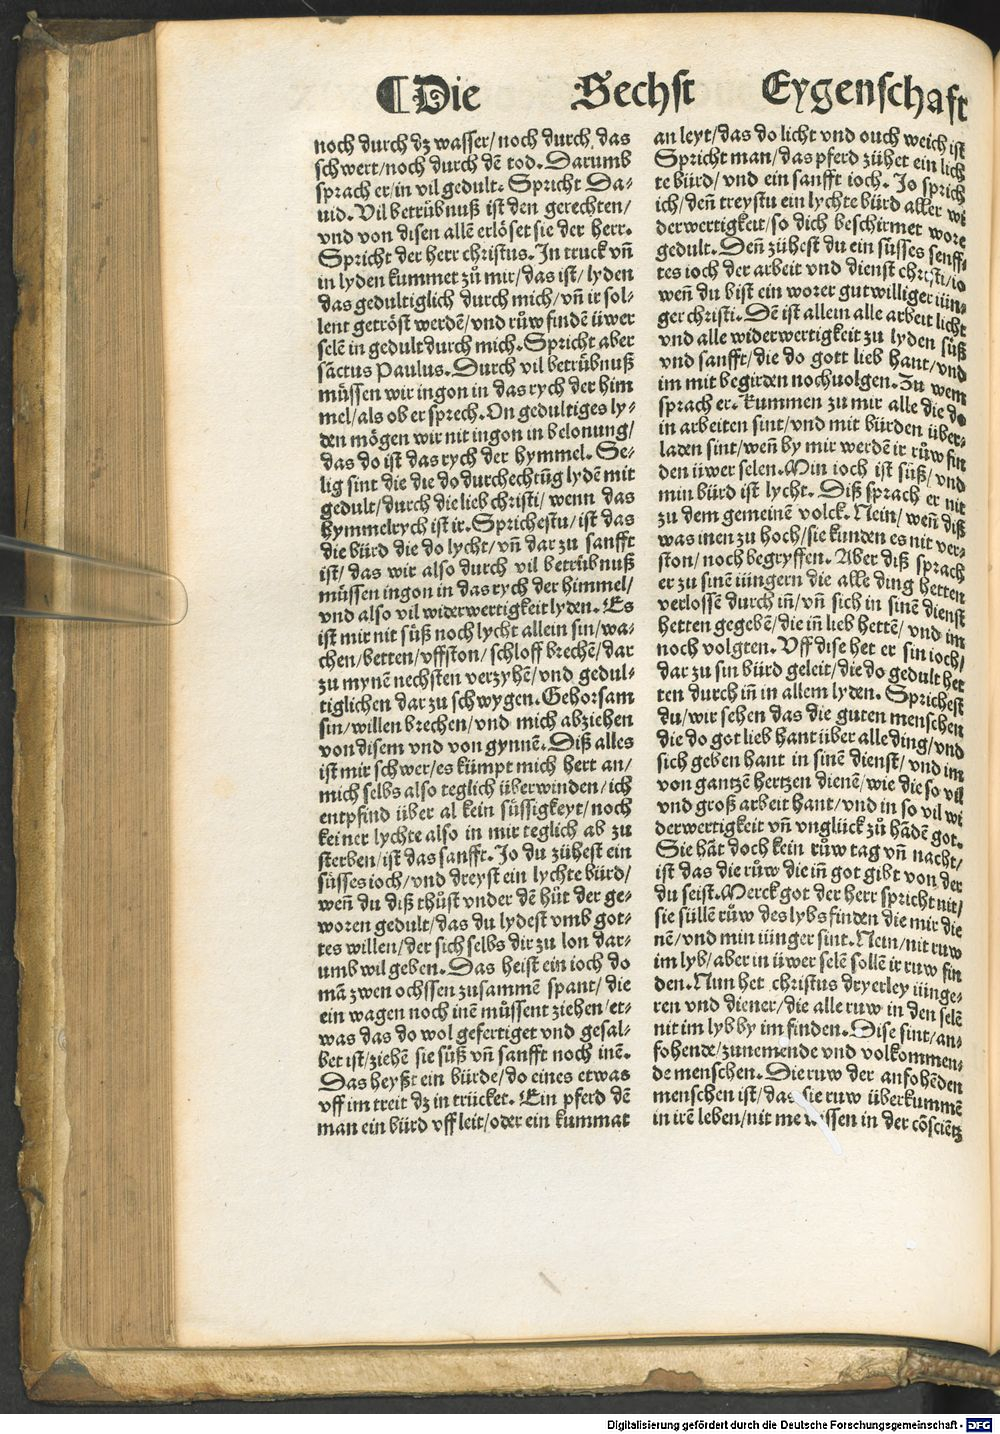 ¶Die Sechst Eygenschaft
noch durch dz wasser/noch durch das
schwert/noch durch dē tod. Darumb
sprach er/in vil gedult. Spricht Da⸗
uid. Vil betrübnuß ist den gerechten/
vnd von disen allē erlöset sie der herr.
Spricht der herr christus. In truck vn̄
in lyden kummet zů mir/das ist/lyden
das gedultiglich durch mich/vn̄ ir sol⸗
lent getröst werdē/vnd růw findē üwer
selē in gedult durch mich. Spricht aber
sāctus Paulus. Durch vil betrübnuß
müssen wir ingon in das rych der him
mel/als ob er sprech. On gedultiges ly⸗
den mögen wir nit ingon in belonung/
das do ist das rych der hymmel. Se⸗
lig sint die die do durchechtūg lydē mit
gedult/durch die lieb christi/wenn das
hymmelrych ist ir. Sprichestu/ist das
die bürd die do lycht/vn̄ dar zu sanfft
ist/das wir also durch vil betrübnuß
müssen ingon in das rych der himmel/
vnd also vil widerwertigkeit lyden. Es
ist mir nit süß noch lycht allein sin/wa⸗
chen/betten/vffston/schloff brechē/dar
zu mynē nechsten verzyhē/vnd gedul⸗
tiglichen dar zu schwygen. Gehorsam
sin/willen brechen/vnd mich abziehen
von disem vnd von gynnē. Diß alles
ist mir schwer/es kümpt mich hert an/
mich selbs also teglich überwinden/ich
entpfind über al kein süssigkeyt/noch
keiner lychte also in mir teglich ab zu
sterben/ist das sanfft. Jo du zühest ein
süsses ioch/vnd dreyst ein lychte bürd/
wen̄ du diß thůst vnder dē hüt der ge⸗
woren gedult/das du lydest vmb got⸗
tes willen/der sich selbs dir zu lon dar⸗
umb wil geben. Das heist ein ioch do
mā zwen ochssen zusammē spant/die
ein wagen noch inē můssent ziehen/et⸗
was das do wol gefertiget vnd gesal⸗
bet ist/ziehē sie süß vn̄ sanfft noch inē.
Das heyßt ein bürde/do eines etwas
vff im treit dz in trücket. Ein pferd dē
man ein bürd vff leit/oder ein kummat
an leyt/das do licht vnd ouch weich ist
Spricht man/das pferd zühet ein lich
te bürd/vnd ein sanfft ioch. Jo sprich
ich/den̄ treystu ein lychte bürd aller wi
derwertigkeit/so dich beschirmet wore
gedult. Den̄ zühest du ein süsses senff⸗
tes ioch der arbeit vnd dienst christi/io
wen̄ du bist ein worer gutwilliger iün⸗
ger christi. Dē ist allein alle arbeit licht
vnd alle widerwertigkeit zu lyden süß
vnd sanfft/die do gott lieb hant/vnd
im mit begirden nochuolgen. Zu wem
sprach er. kummen zu mir alle die do
in arbeiten sint/vnd mit bürden über⸗
laden sint/wen̄ by mir werdē ir růw fin
den üwer selen. Min ioch ist süß/vnd
min bürd ist lycht. Diß sprach er nit
zu dem gemeinē volck. Nein/wen̄ diß
was inen zu hoch/sie kunden es nit ver⸗
ston/noch begryffen. Aber diß sprach
er zu sinē iüngern die alle ding hetten
verlossē durch in̄/vn̄ sich in sinē dienst
hetten gegebē/die in̄ lieb hettē/vnd im
noch volgten. Vff dise het er sin ioch/
dar zu sin bürd geleit/die do gedult het
ten durch in̄ in allem lyden. Sprichest
du/wir sehen das die guten menschen
die do got lieb hant über alle ding/vnd
sich geben hant in sinē dienst/vnd im
von gantzē hertzen dienē/wie die so vil
vnd groß arbeit hant/vnd in so vil wi
derwertigkeit vn̄ vnglück zů hādē got.
Sie hāt doch kein růw tag vn̄ nacht/
ist das die růw die in̄ got gibt von der
du seist. Merck got der herr spricht nit/
sie süllē růw des lybs finden die mir die
nē/vnd min iünger sint. Nein/nit ruw
im lyb/aber in üwer selē sollē ir ruw fin
den. Nun het christus dryerley iünge⸗
ren vnd diener/die alle ruw in den selē
nit im lyb by im finden. Dise sint/an⸗
fohende/zunemende vnd volkommen⸗
de menschen. Die ruw der anfohēden
menschen ist/das sie ruw überkummē
in irē leben/nit me wissen in der cōsciētz
Digitalisierung gefördert durch die Deutsche Forschungsgemeinschaft - DFG